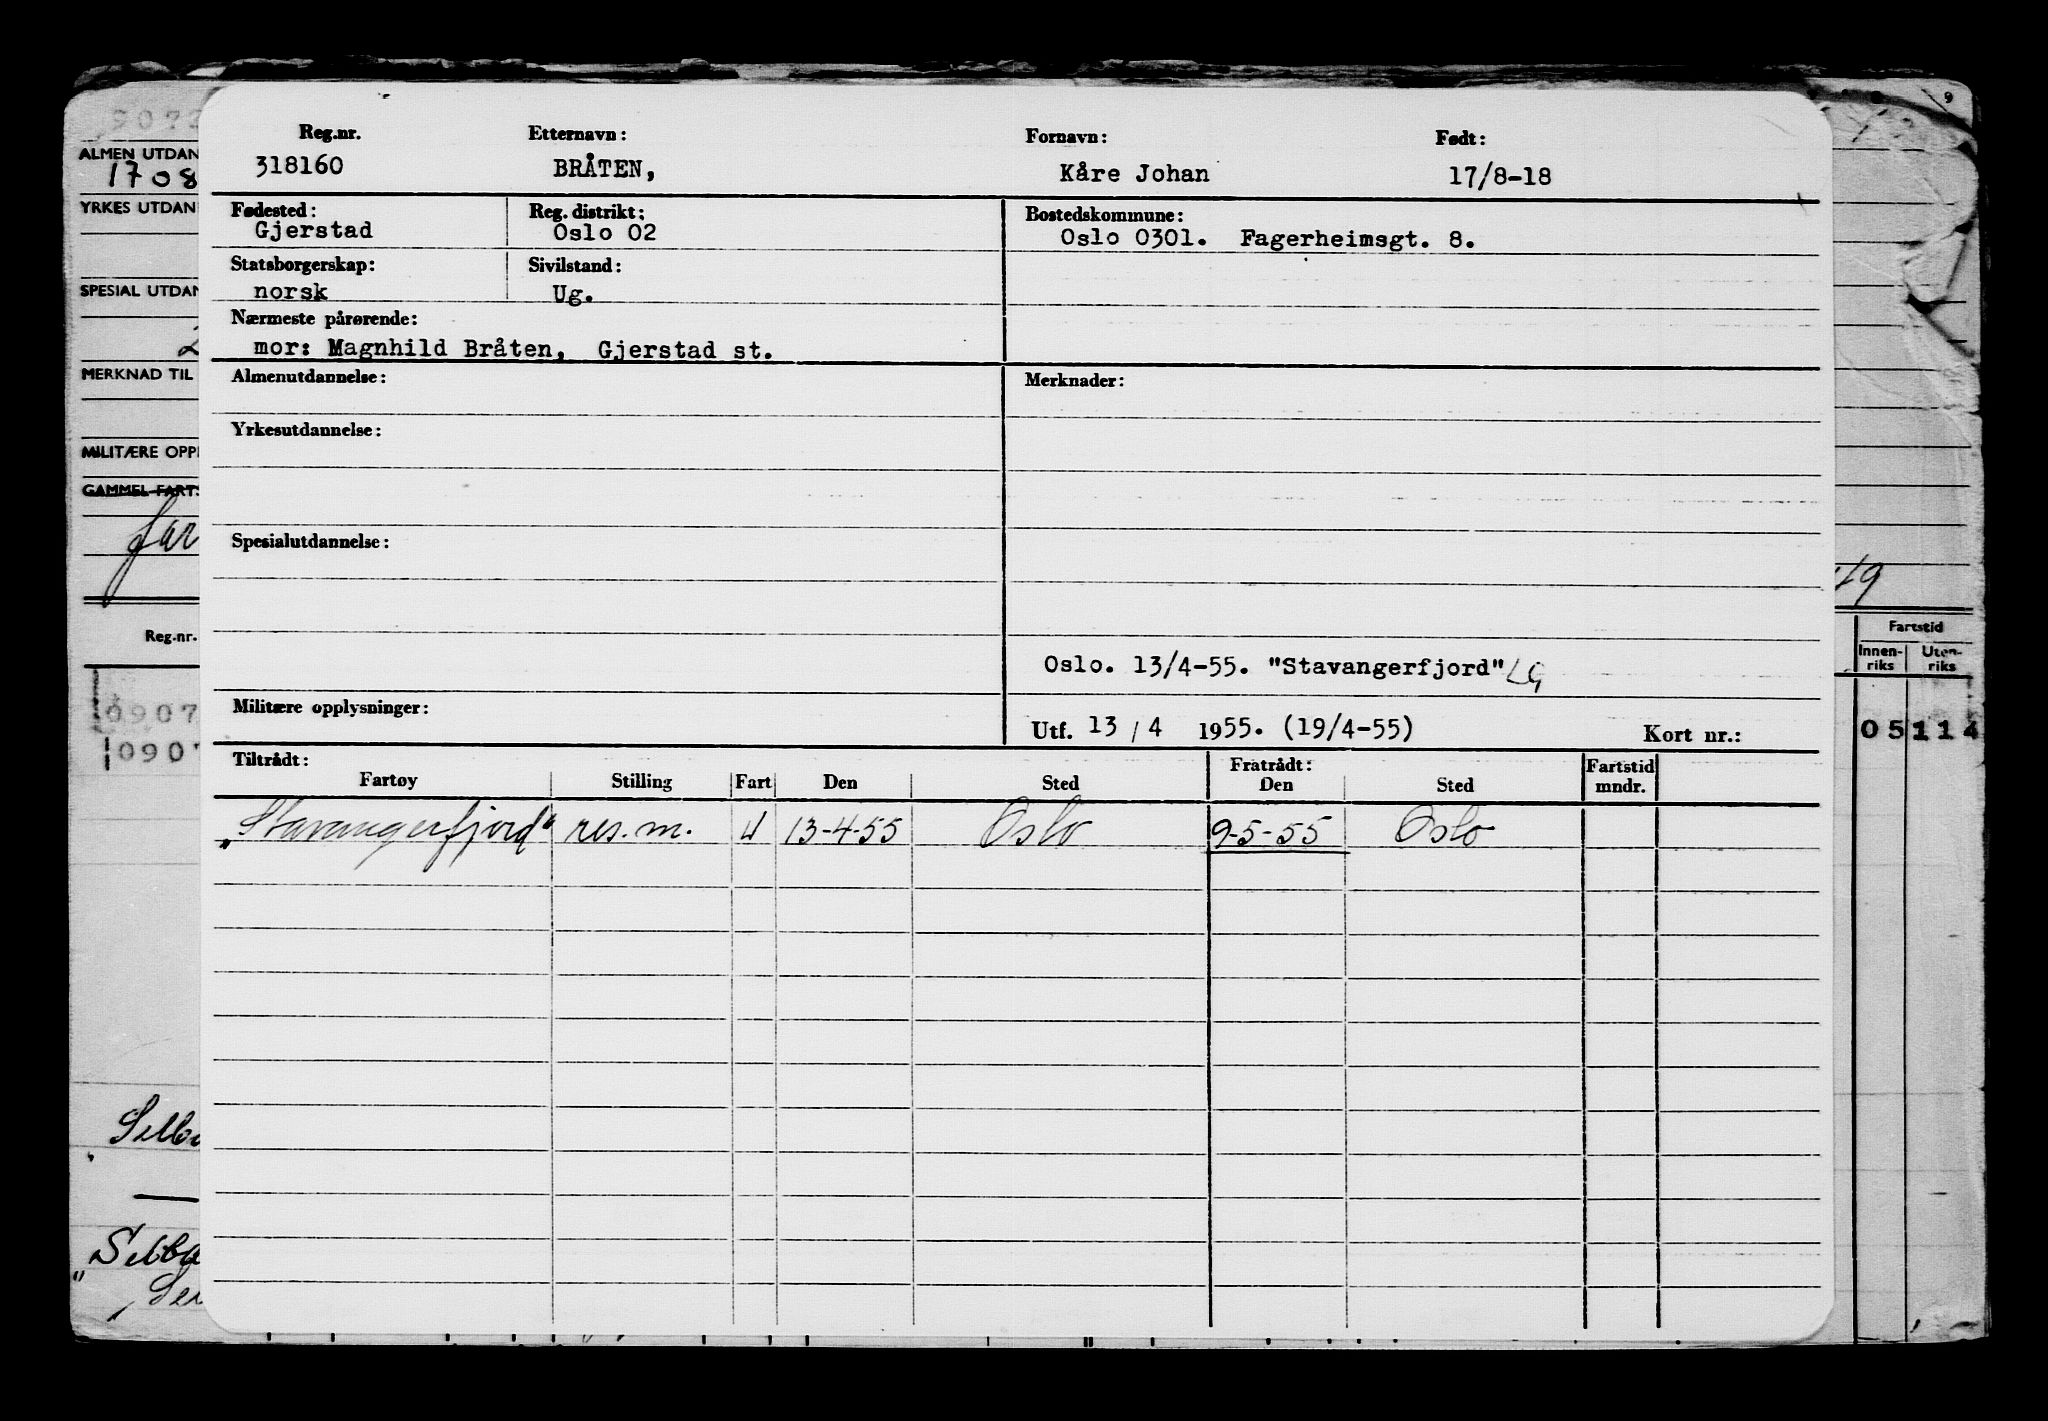 Reg.nr. Etternavn: Fornavn: Født:
318160 BRÅTEN, Kåre Johan 17/8-18
Fødested: Reg. distrikt: Bostedskommune:
Gjerstad Oslo 02 Oslo 0301. Fagerheimsgt. 8.
Statsborgerskap: Sivilstand:
norsk Ug.
Nærmeste pårørende:
mor: Magnhild Bråten, Gjerstad st.
Almenutdannelse: Merknader:
Yrkesutdannelse:
Spesialutdannelse:
Oslo. 13/4-55. "Stavangerfjord" LG
Militære opplysninger:
Utf. 13 / 4 1955. (19/4-55) Kort nr.:
Tiltrådt: Fratrådt: Fartstid
Fartøy Stilling Fart Den Sted Den Sted mndr.
"Stavangerfjord" res. m. U 13-4-55 Oslo 9-5-55 Oslo
ALMEN UTDAN
1708
YRKES UTDAN
SPESIAL UTDAN
2
MERKNAD TIL
MILITÆRE OPP
GAMMEL FARTS
far
Reg.nr.
0907
0907
Selb
"Selba
Se
9
49
Fartstid
Innen- Uten-
riks riks
05 114